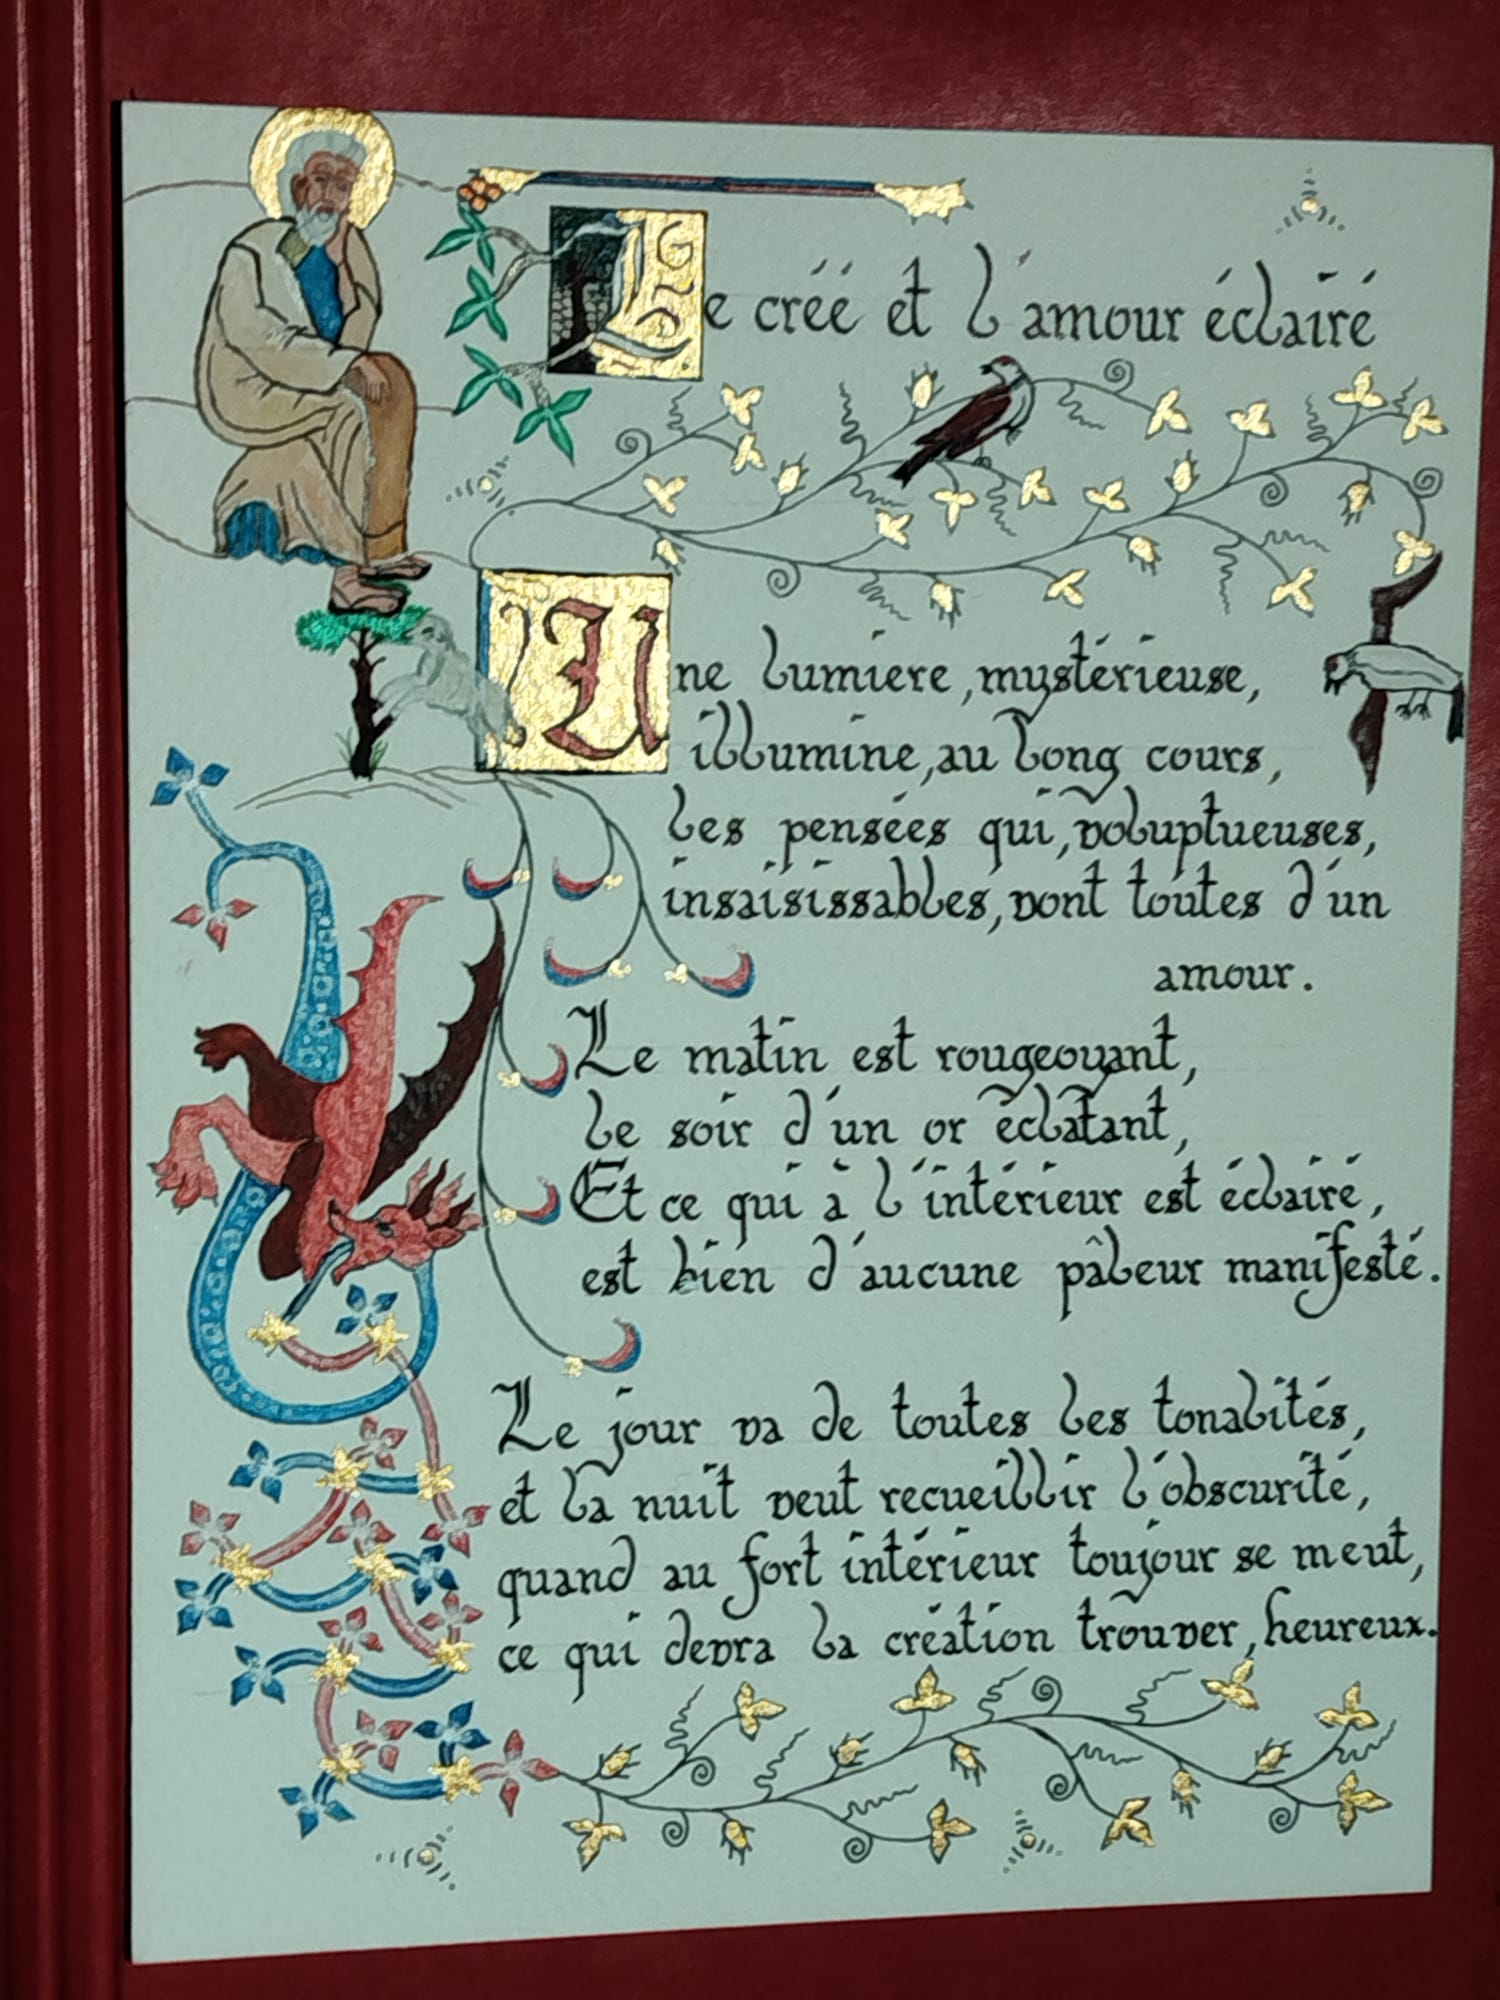 Le créé et l'amour éclairé
Une lumière, mystérieuse,
illumine, au long cours,
les pensées qui, voluptueuses,
insaisissables, vont toutes d'un
amour.
Le matin est rougeoyant,
le soir d'un or éclatant,
Et ce qui à l'intérieur est éclairé,
est bien d'aucune pâleur manifesté.
Le jour va de toutes les tonalités,
et la nuit veut recueillir l'obscurité,
quand au fort intérieur toujour se meut,
ce qui devra la création trouver, heureux.